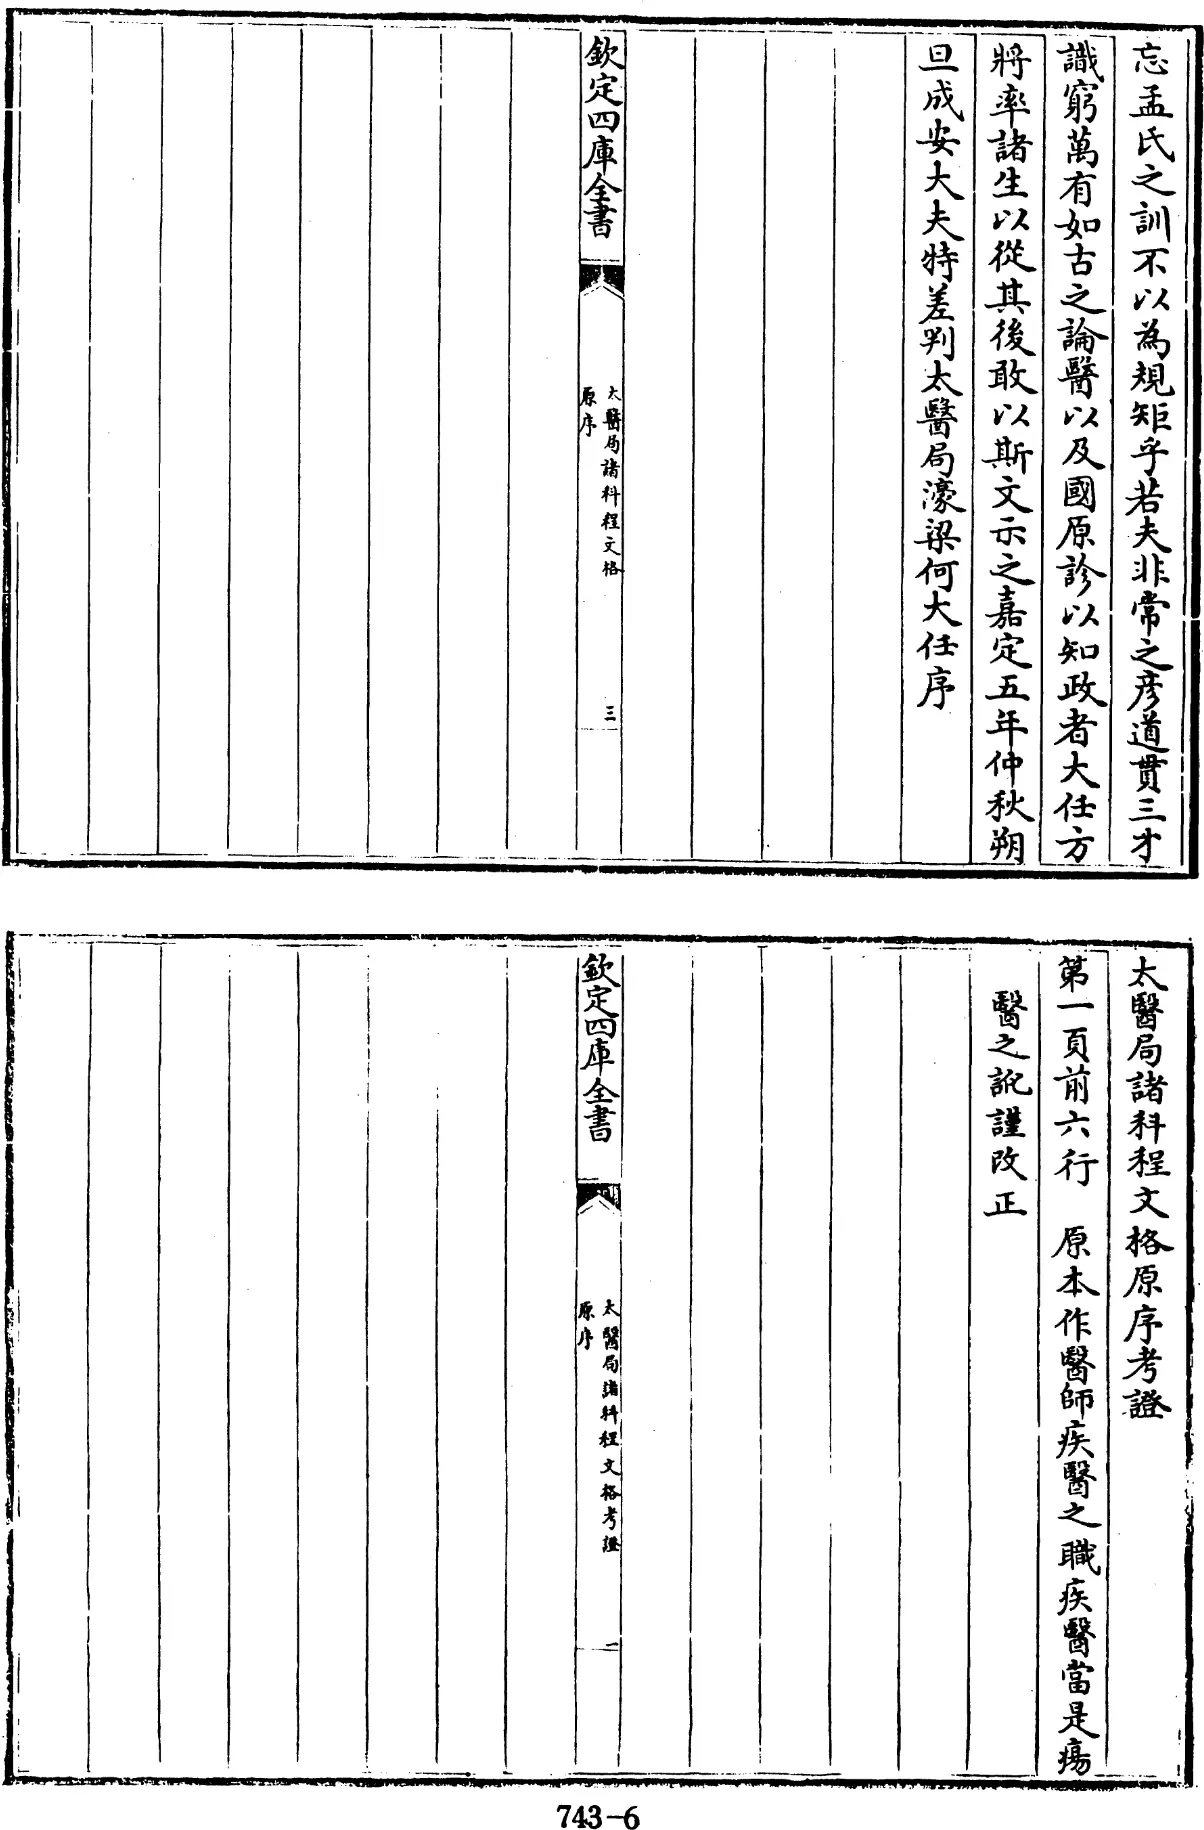 忘孟氏之訓不以為規矩乎若夫非常之彦道貫三才
識窮萬有如古之論醫以及國原診以知政者大任方
將率諸生以從其後敢以斯文示之嘉定五年仲秋朔
旦成安大夫特差判太醫局濠梁何大任序
欽定四庫全書
太醫局諸科程文格
原序
三
太醫局諸科程文格原序考證
第一頁前六行 原本作醫師疾醫之職疾醫當是瘍
醫之訛謹改正
欽定四庫全書
太醫局諸科程文格考證
原序
一
743-6